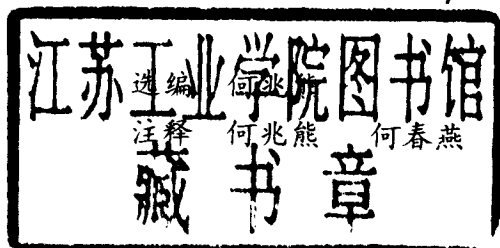 江苏工业学院图书馆
选编 何兆熊
注释 何兆熊 何春燕
藏书章